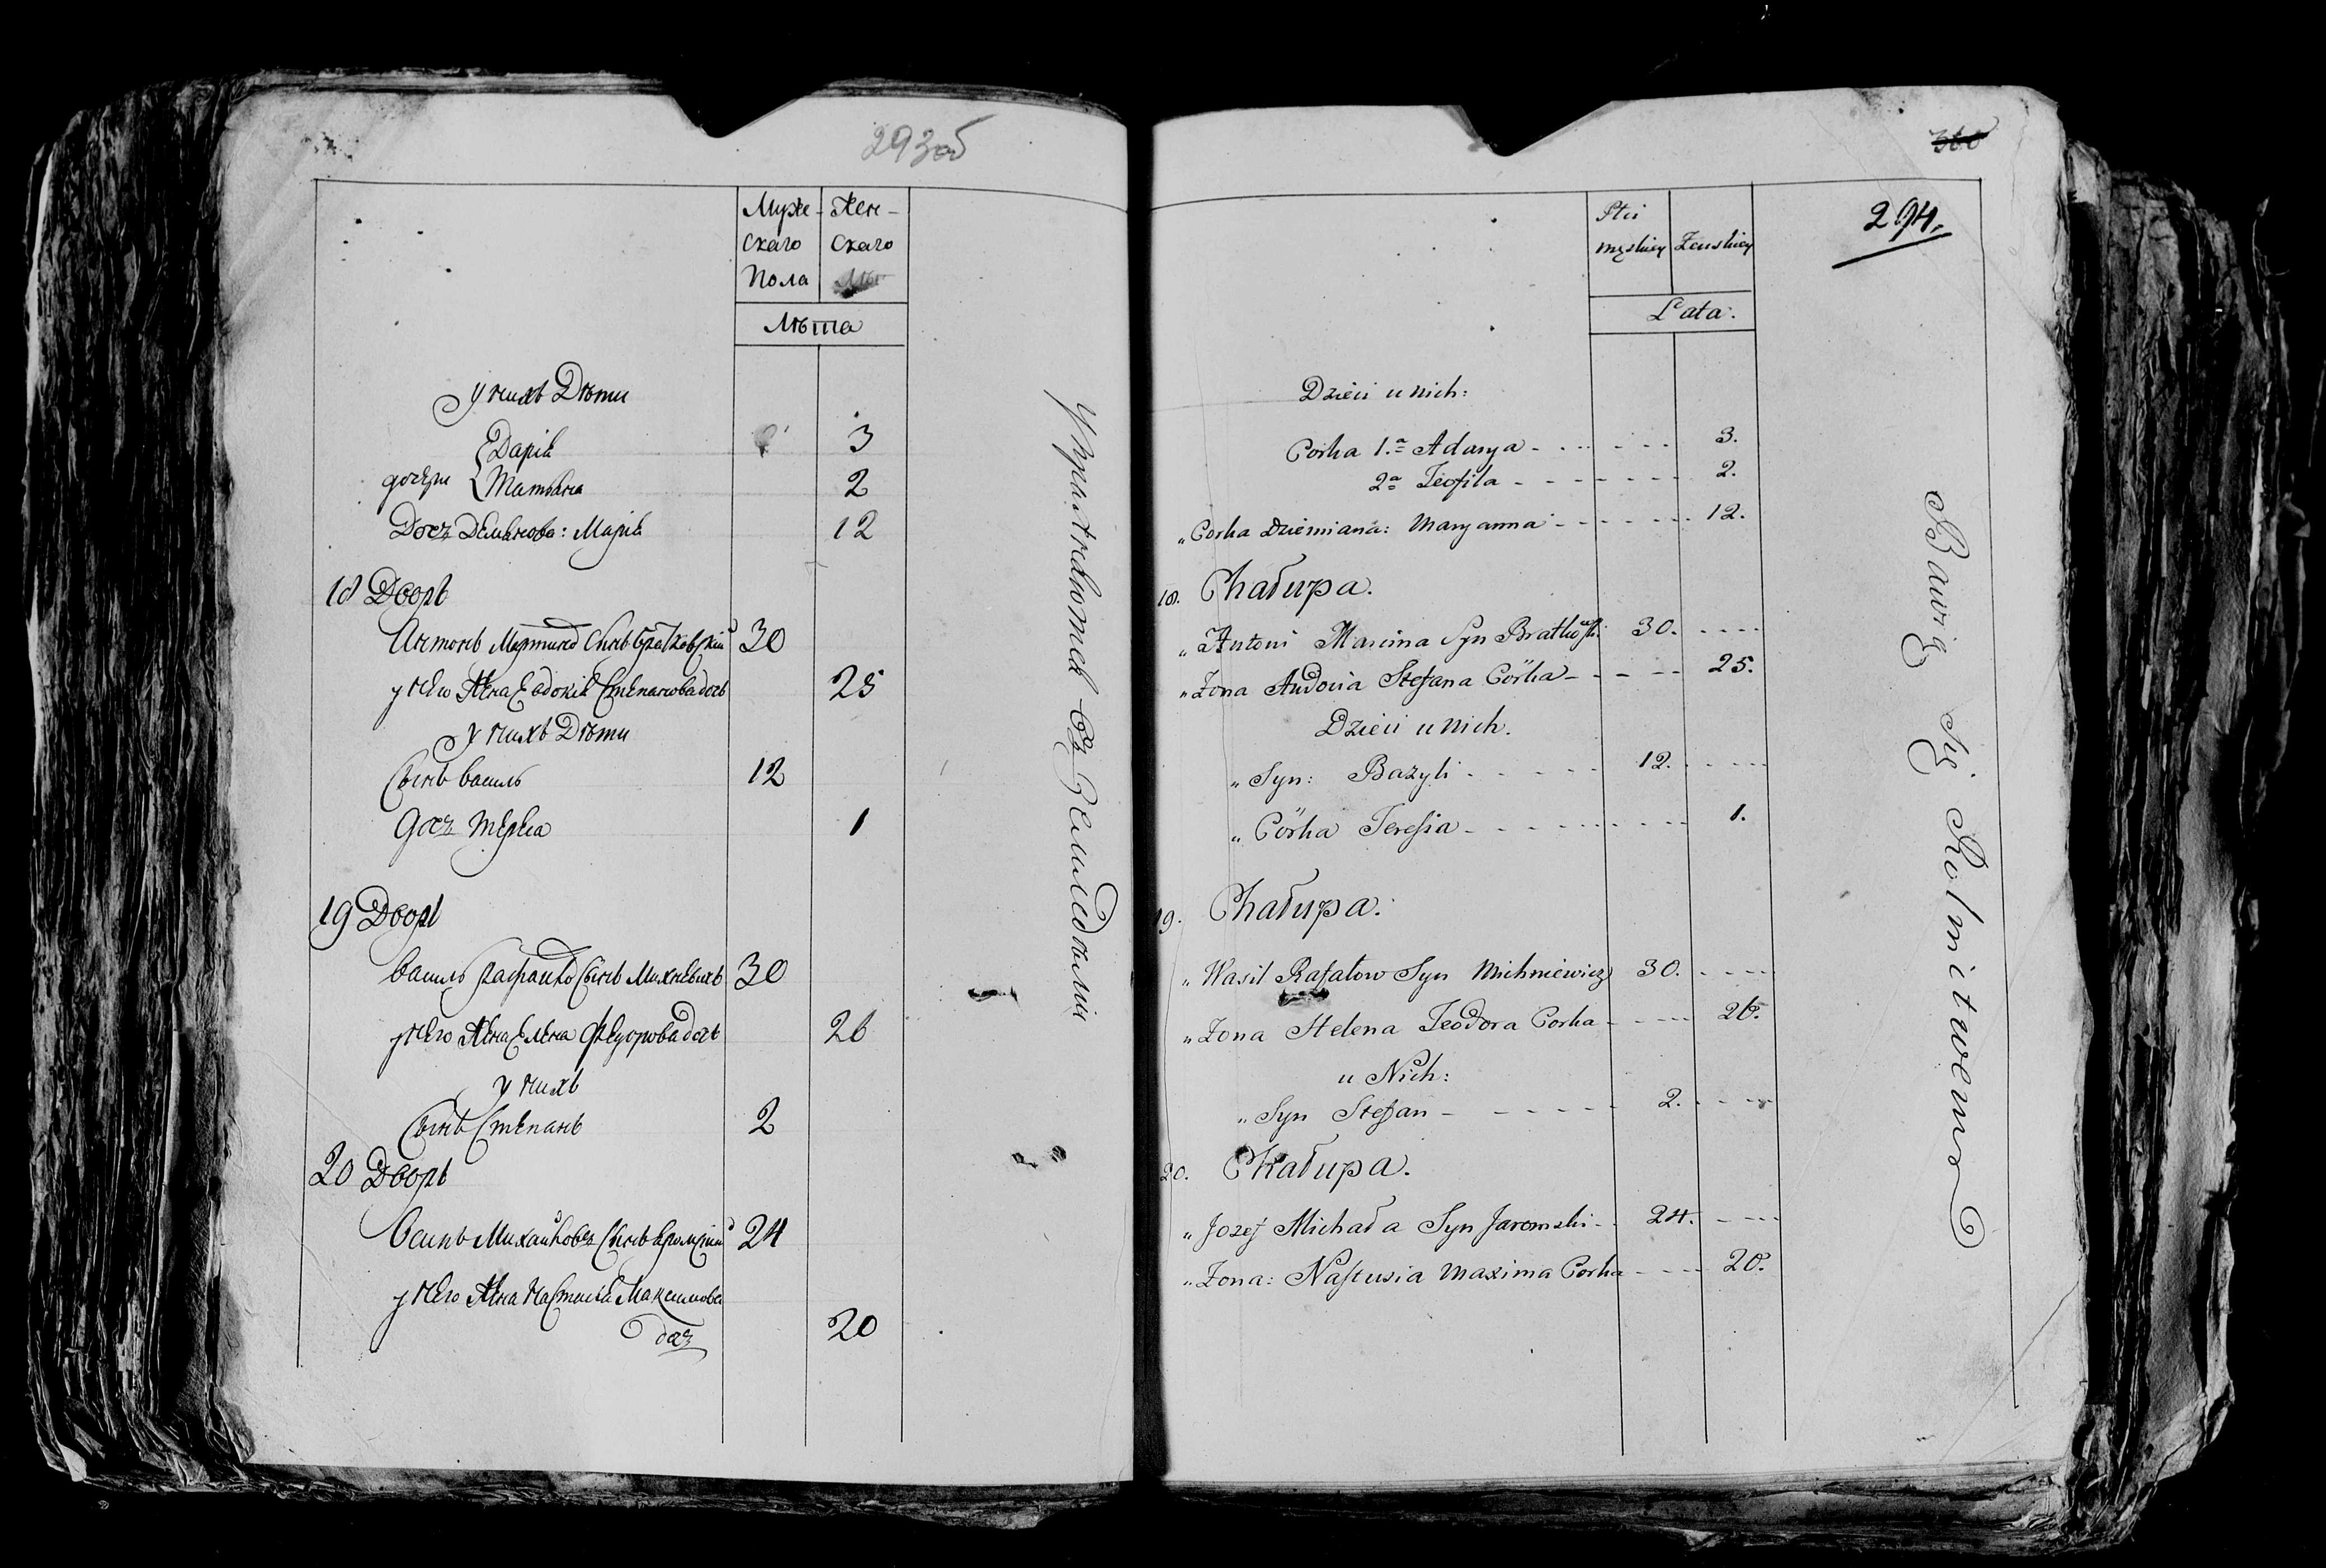 293об
Муже- Жен-
Скаго Скаго
Пола
Лѣта
у нихъ Дѣти
Дарія 3
дочери Татьяна 2
Дочь Демьянова: Марія 12
18 Дворъ
Антонъ Мартиновъ Сынъ Братковскій 30
у него Жена Евдокія Степанова дочь 25
у нихъ Дѣти
Сынъ Василь 12
Дочь Тереса 1
19 Дворъ
Василь Рафаиловъ Сынъ Михневичъ 30
у него Жена Елена Федорова дочь 26
у нихъ
Сынъ Степанъ 2
20 Дворъ
Осипъ Михайловъ Сынъ Яромскій 24
у него Жена Настасья Максимова
дочь 20
Упражняются Въ Земледѣліи
360
294.
Płci
męskiey Żenskiey
Lata.
Dzieci u nich:
Corka 1.a Adarya 3.
2a Teofila 2.
„ Corka Dziemiana: Maryanna 12.
18. Chałupa.
„ Antoni Marcina Syn Bratkowski 30.
„ Zona Audocia Stefana Córka 25.
Dzieci u Nich.
„ Syn: Bazyli 12.
„ Córka Teresia 1.
19. Chałupa.
„ Wasil Rafałow Syn Michniewicz 30.
„ Zona Helena Teodora Corka 26.
u Nich:
„ Syn Stefan 2.
20. Chałupa.
„ Jozef Michała Syn Jaromski 24.
„ Zona: Nastusia Maxima Corka 20.
Bawią się Rolnitwem